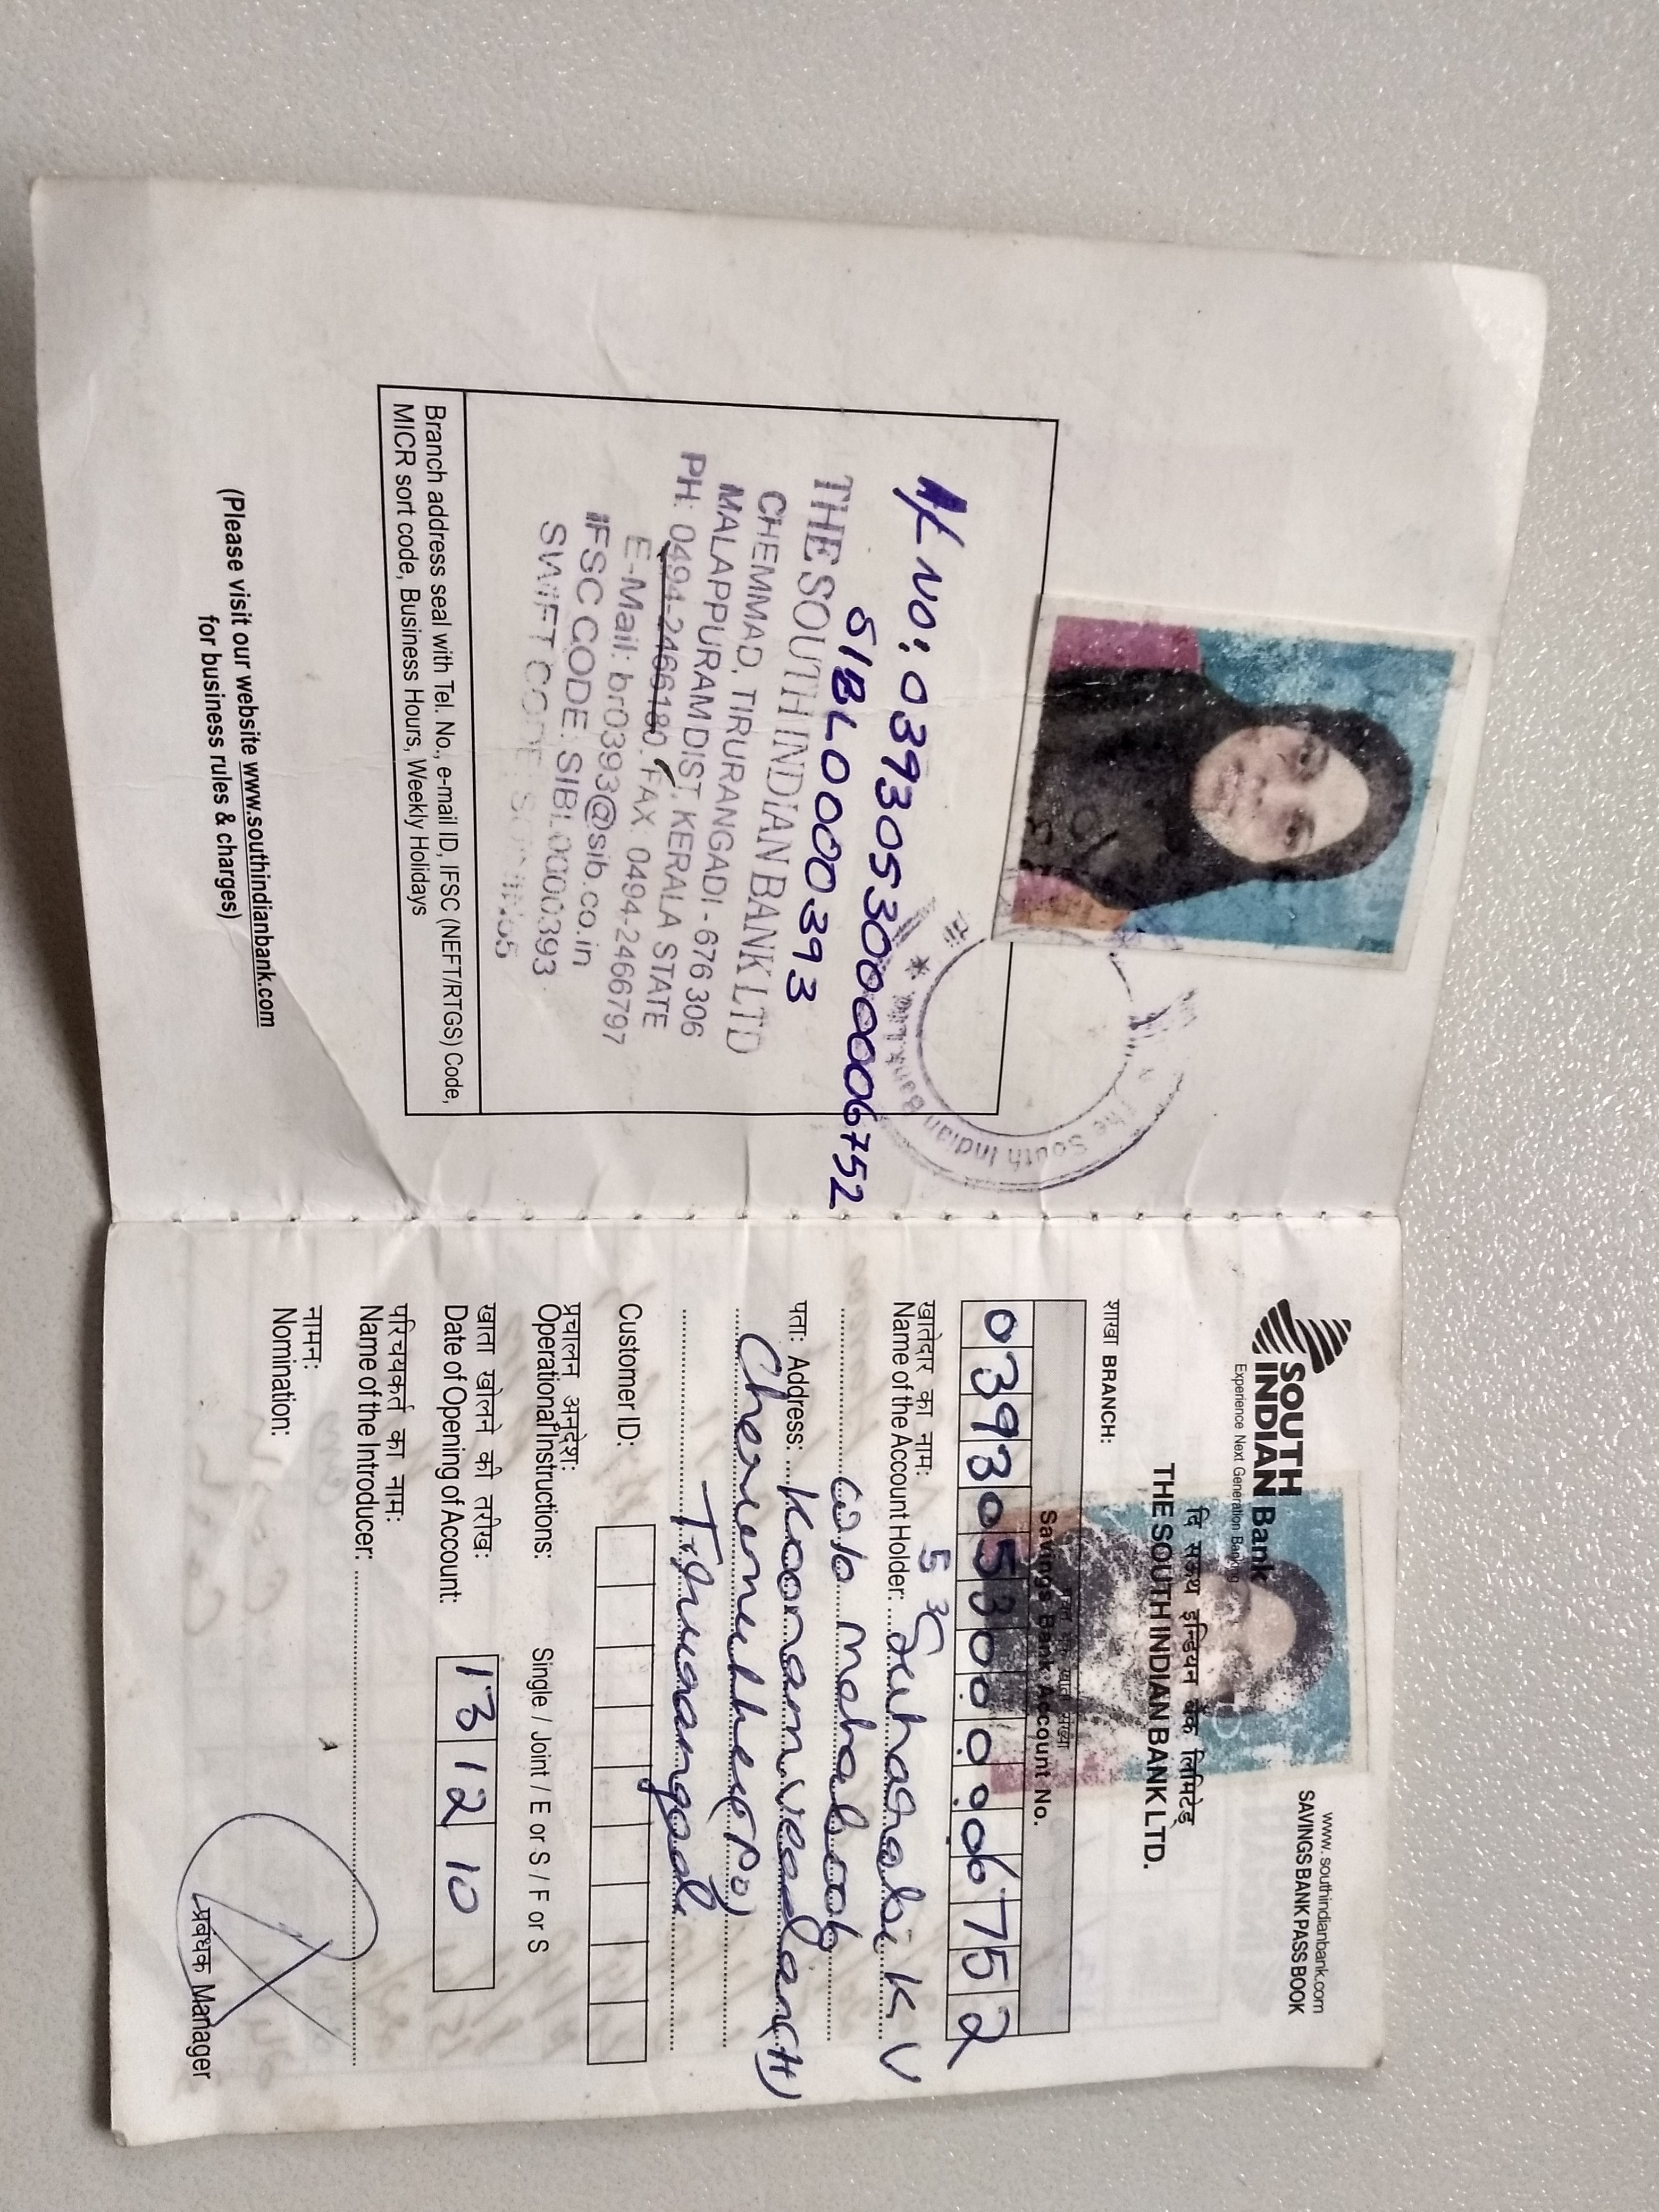 A/c NO: 0393053000006752
SIBL0000393
THE SOUTH INDIAN BANK LTD
CHEMMAD, TIRURANGADI - 676 306
MALAPPURAM DIST, KERALA STATE
PH: 0494-2466180. FAX. 0494-2466797
E-Mail: br0393@sib.co.in
IFSC CODE: SIBL0000393
SWIFT CODE:
Branch address seal with Tel. No., e-mail ID, IFSC (NEFT/RTGS) Code,
MICR sort code, Business Hours, Weekly Holidays
(Please visit our website www.southindianbank.com
for business rules & charges)
The South Indian Bank Ltd
SOUTH
INDIAN Bank
Experience Next Generation Banking
www. southindianbank.com
SAVINGS BANK PASS BOOK
दि साउथ इन्डियन बैंक लिमिटेड
THE SOUTH INDIAN BANK LTD.
शाखा BRANCH:
Savings Bank Account No.
0393053000006752
5 30
खातेदार का नाम:
Name of the Account Holder: Suharabi K V
W/o Mehaboob
पता: Address: Koonamveedan (H)
Cherumukku (Po)
Tirurangadi
Customer ID:
प्रचालन अनुदेश:
Operational Instructions: Single / Joint / E or S / F or S
खाता खोलने की तारीख:
Date of Opening of Account: 13 12 10
परिचयकर्ता का नाम:
Name of the Introducer:
नामन:
Nomination:
प्रबंधक Manager